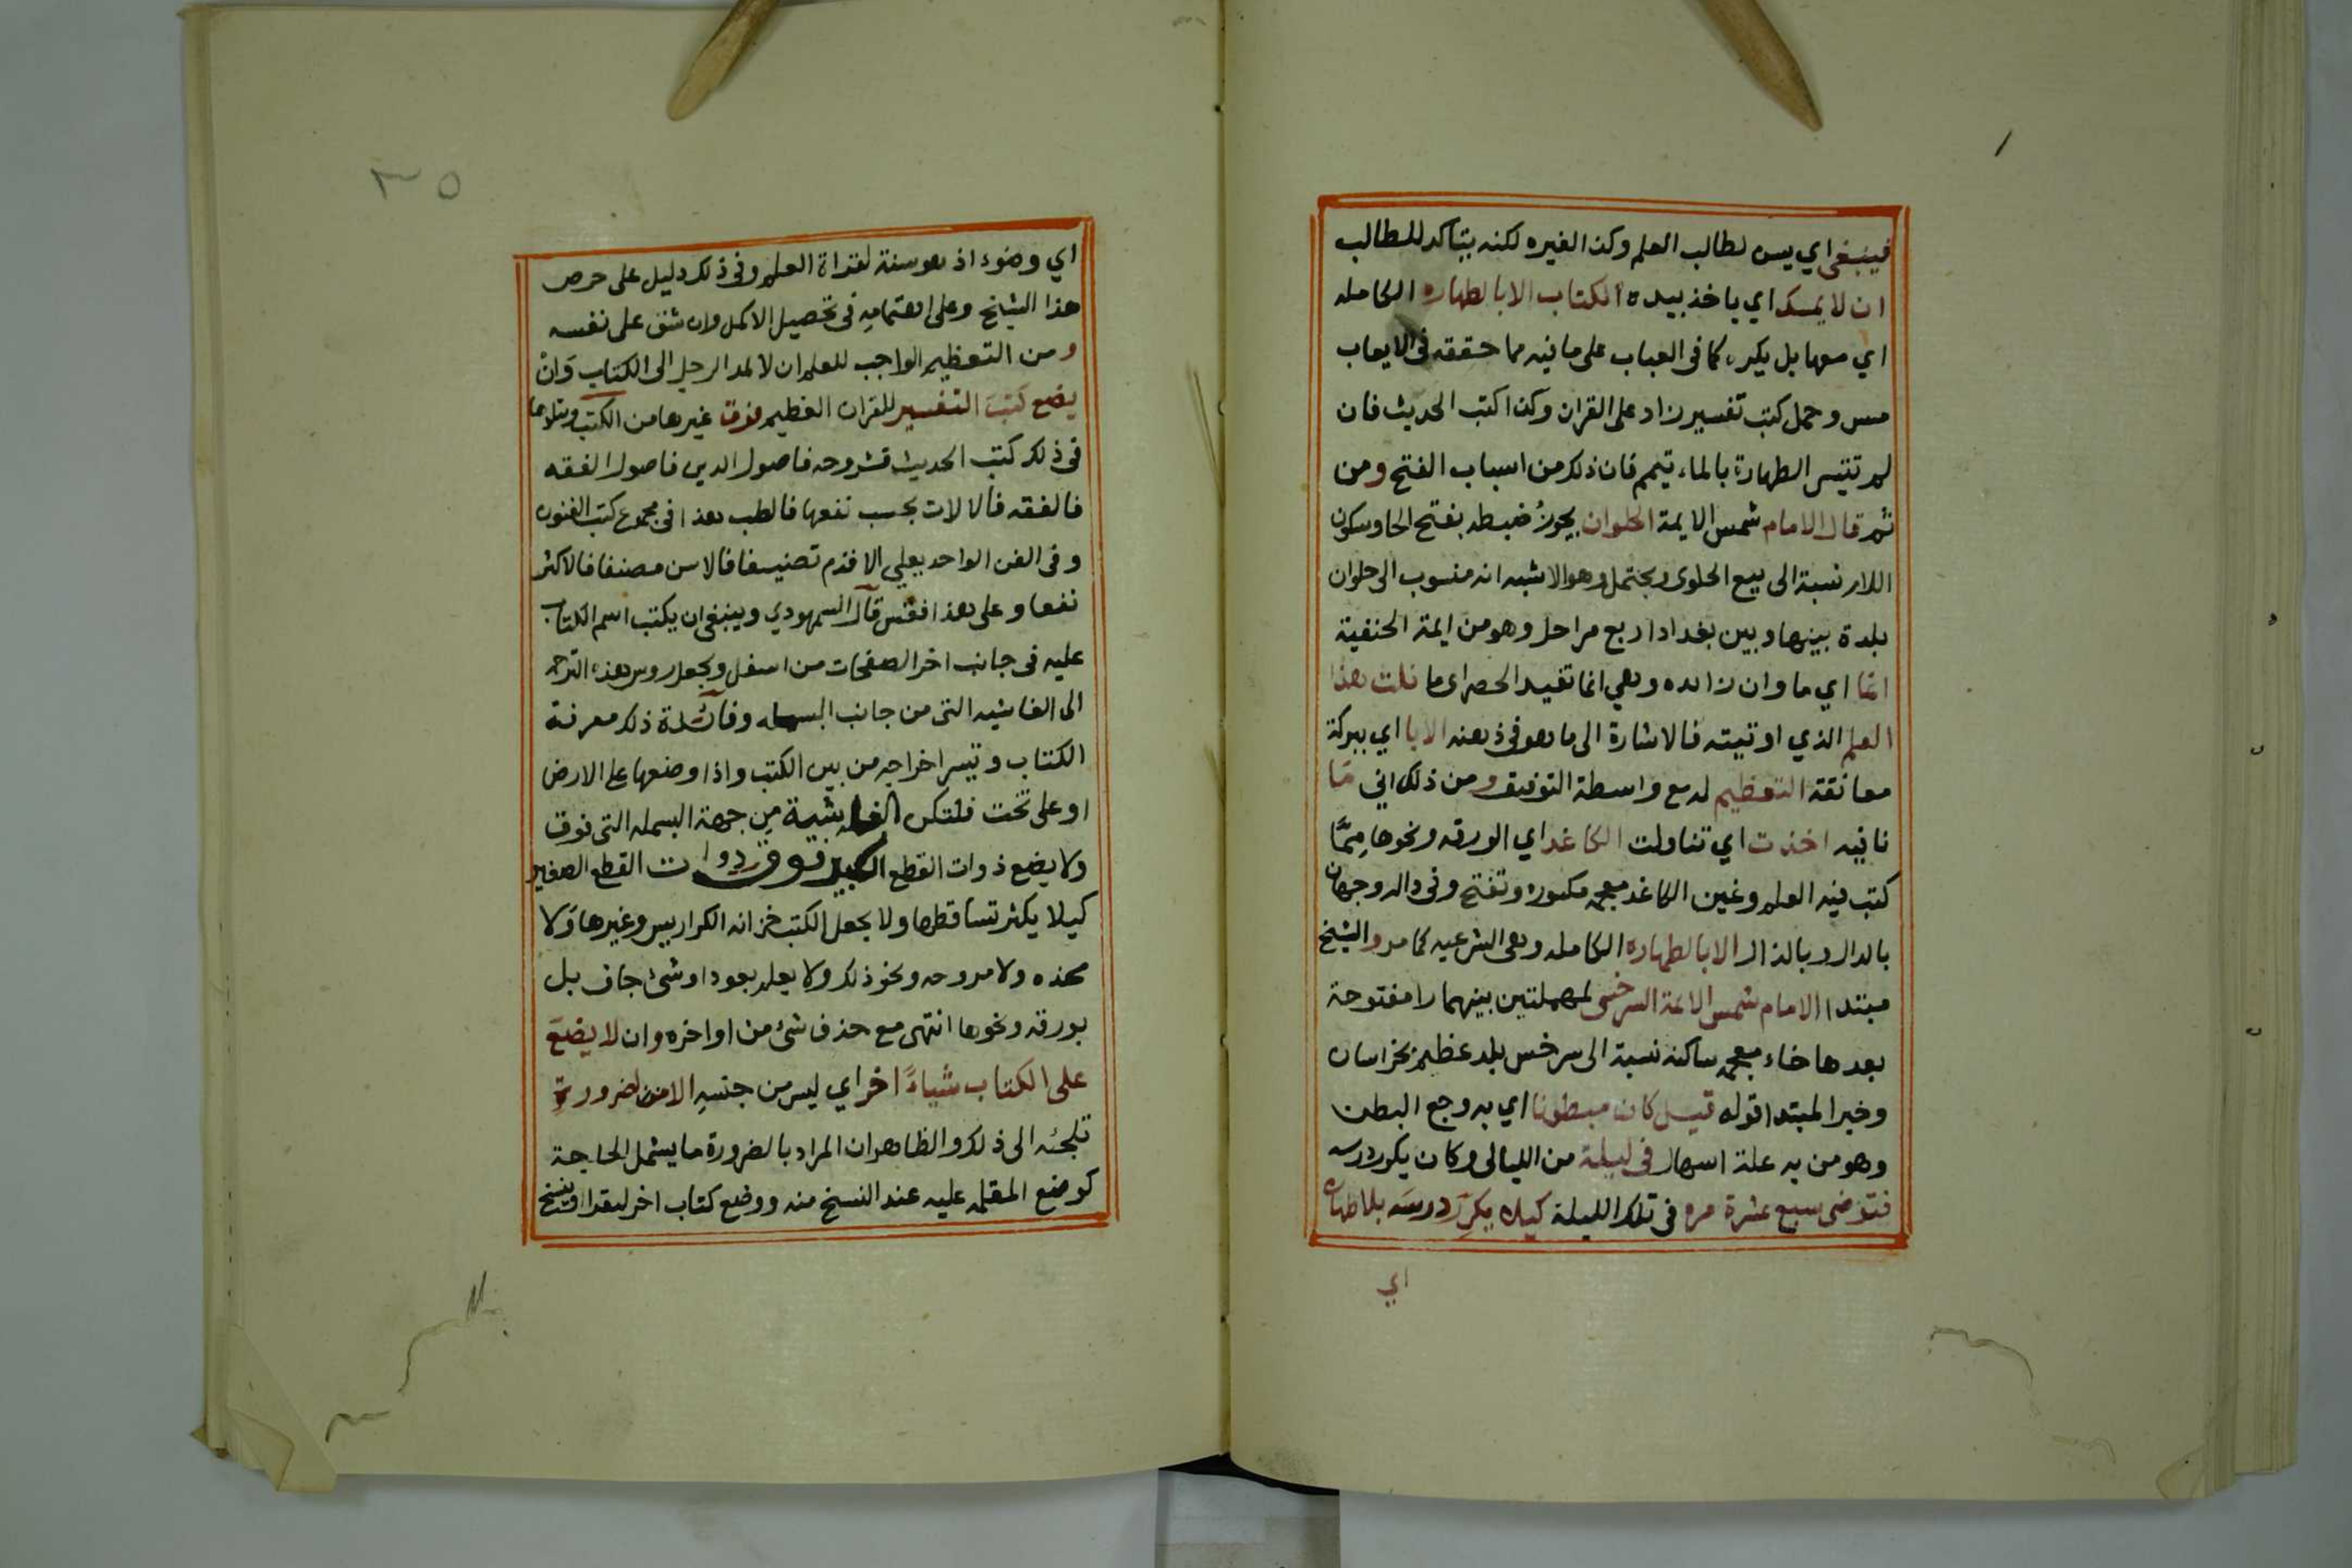 فينبغي اي يسن لطالب العلم وكذا لغيره لكنه يتاكد للطالب
ان لا يمسك اي ياخذ بيده الكتاب الا بالطهاره الكامله
اي معها بل يكره كما في العباب على ما فيه مما حققه في الايعاب
مس وحمل كتب تفسير زاد على القران وكذا كتب الحديث فان
لم تتيسر الطهارة بالماء تيمم فان ذلك من اسباب الفتح ومن
ثم قال الامام شمس الايمة الحلوان يجوز ضبطه بفتح الحا وسكون
اللام نسبة الى بيع الحلوى ويحتمل وهو الاشبه انه منسوب الى حلوان
بلدة بينها وبين بغداد اربع مراحل وهو من ايمة الحنفية
انما اي ما وان زايده وهي انما تفيد الحصر اي ما نلت هذا
العلم الذي اوتيته فالاشارة الى ما هو في ذهنه الا با اي ببركة
معانقة التعظيم له مع واسطة التوفيق ومن ذلك اني ما
نافيه اخذت اي تناولت الكاغد اي الورقه ونحوها مما
كتب فيه العلم وغين الكاغد معجمه مكسوره وتفتح وفي داله وجهان
بالدال وبالذال الا بالطهاره الكامله وهي الشرعيه كما مر والشيخ
مبتدا الامام شمس الائمة السرخسى لمهملتين بينهما را مفتوحة
بعدها خاء معجمه ساكنه نسبة الى سرخس بلد عظيم بخراسان
وخبر المبتدا قوله قيل كان مبطونا اي به وجع البطن
وهو من به علة اسهال في ليلة من الليالي وكان يكرر درسه
فتوضى سبع عشرة مره في تلك الليلة كيلا يكرر درسه بلا طهاره
اي
٣٥
اي وضوء اذ هو سنة لقراة العلم وفي ذلك دليل على حرص
هذا الشيخ وعلى اهتمامه في تحصيل الاكمل وان شق على نفسه
ومن التعظيم الواجب للعلم ان لا يمد الرجل الى الكتاب وان
يضع كتب التفسير للقران العظيم فوق غيرها من الكتب ويتلوها
في ذلك كتب الحديث فشروحه فاصول الدين فاصول الفقه
فالفقه فالالات بحسب نفعها فالطب هذا في مجموع كتب الفنون
وفي الفن الواحد يعلي الاقدم تصنيفا فالاسن مصنفا فالاكثر
نفعا وعلى هذا فقس قال السمهودي وينبغي ان يكتب اسم الكتاب
عليه في جانب اخر الصفحات من اسفل ويجعل روس هذه الترجمه
الى الغاشيه التي من جانب البسمله وفائدة ذلك معرفة
الكتاب وتيسر اخراجه من بين الكتب واذا وضعها على الارض
او على تخت فلتكن الغاشية من جهة البسمله التي فوق
ولا يضع ذوات القطع الكبير فوق ذوات القطع الصغير
كيلا يكثر تساقطها ولا يجعل الكتب خزانه الكراريس وغيرها ولا
مخده ولا مروحه ونحو ذلك ولا يعلم بعود او شئ جاف بل
بورقه ونحوها انتهى مع حذف شئ من اواخره وان لا يضع
على الكتاب شياء اخر اي ليس من جنسه الا لضرورة
تلجئه الى ذلك والظاهر ان المراد بالضرورة ما يشمل الحاجة
كوضع المقلمه عليه عند النسخ منه ووضع كتاب اخر ليقرا وينسخ